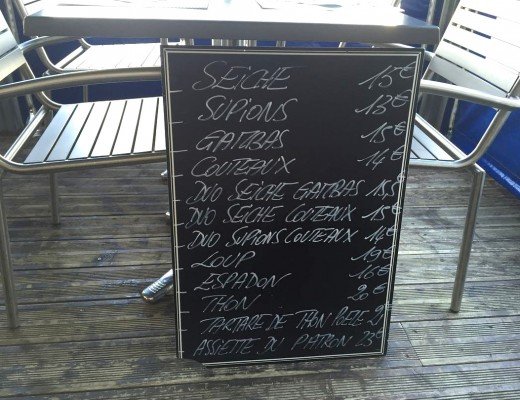 SEICHE 15€
SUPIONS 13€
GAMBAS 15€
COUTEAUX 14€
DUO SEICHE GAMBAS 18,5€
DUO SEICHE COUTEAUX 15€
DUO SUPIONS COUTEAUX 14€
LOUP 19€
ESPADON 16€
THON 20€
TARTARE DE THON POELE
ASSIETTE DU PATRON 23€